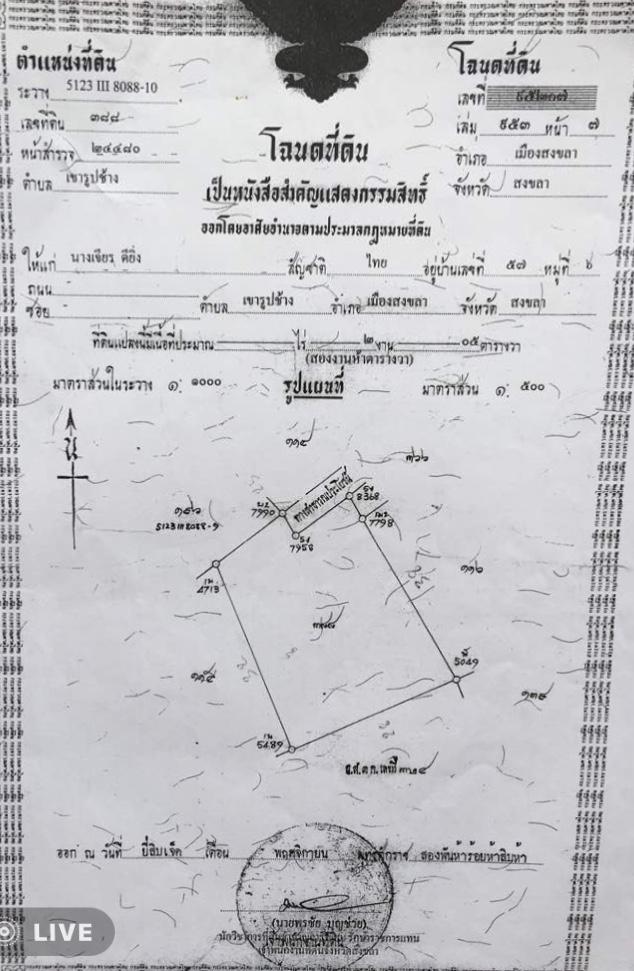 ตำแหน่งที่ดิน
ระวาง 5123 III 8088-10
เลขที่ดิน ๓๘๘
หน้าสำรวจ ๒๔๔๘๐
ตำบล เขารูปช้าง
โฉนดที่ดิน
เลขที่
เล่ม ๙๕๓ หน้า ๗
อำเภอ เมืองสงขลา
จังหวัด สงขลา
โฉนดที่ดิน
เป็นหนังสือสำคัญแสดงกรรมสิทธิ์
ออกโดยอาศัยอำนาจตามประมวลกฎหมายที่ดิน
ให้แก่ นางเจียร ดียิ่ง สัญชาติ ไทย อยู่บ้านเลขที่ ๕๗ หมู่ที่ ๖
ถนน
ซอย ตำบล เขารูปช้าง อำเภอ เมืองสงขลา จังหวัด สงขลา
ที่ดินแปลงนี้มีเนื้อที่ประมาณ ไร่ ๒ งาน ๐๕ ตารางวา
(สองงานห้าตารางวา)
มาตราส่วนในระวาง ๑: ๑๐๐๐ รูปแผนที่ มาตราส่วน ๑: ๕๐๐
น
๓๖๖
ทางสาธารณประโยชน์
8368
7990
7798
5123 III 8088-9
7958
๑๑๖
4713
๓๘๘
5049
5489
ออก ณ วันที่ ยี่สิบเจ็ด เดือน พฤศจิกายน พุทธศักราช สองพันห้าร้อยห้าสิบห้า
(นายพรชัย บุญช่วย)
เจ้าพนักงานที่ดินจังหวัดสงขลา
LIVE